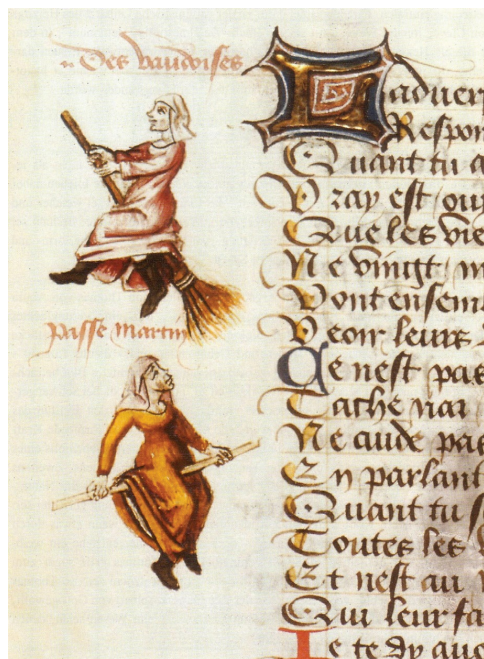 Des vaudoises
passe martin
Laduer
Respon
Quant tu a
Vray est ouy
Que les vie
Ne vingt m
Vont ensem
Veoir leurs
Ce nest pas
Tache
Ne cuide pas
En parlant
Quant tu
Toutes les
Et nest au
Qui leur fa
Je te dy que